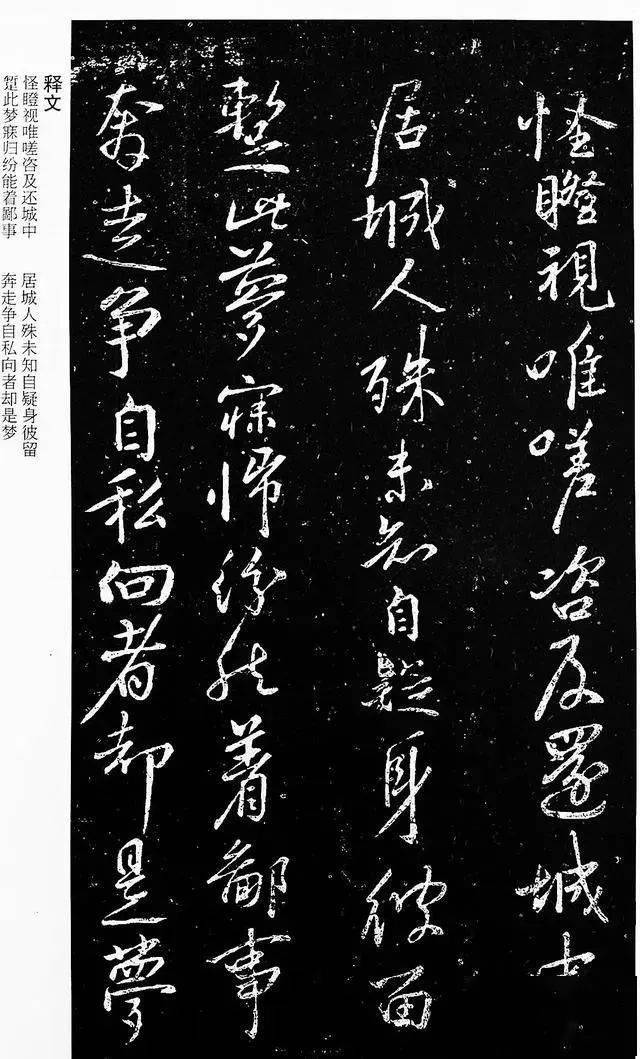 怪瞪視唯嗟咨及還城中
居城人殊未知自疑身彼留
蹔此夢寐歸紛能着鄙事
奔走争自私向者却是夢
释文
怪瞪视唯嗟咨及还城中 居城人殊未知自疑身彼留
蹔此梦寐归纷能着鄙事 奔走争自私向者却是梦